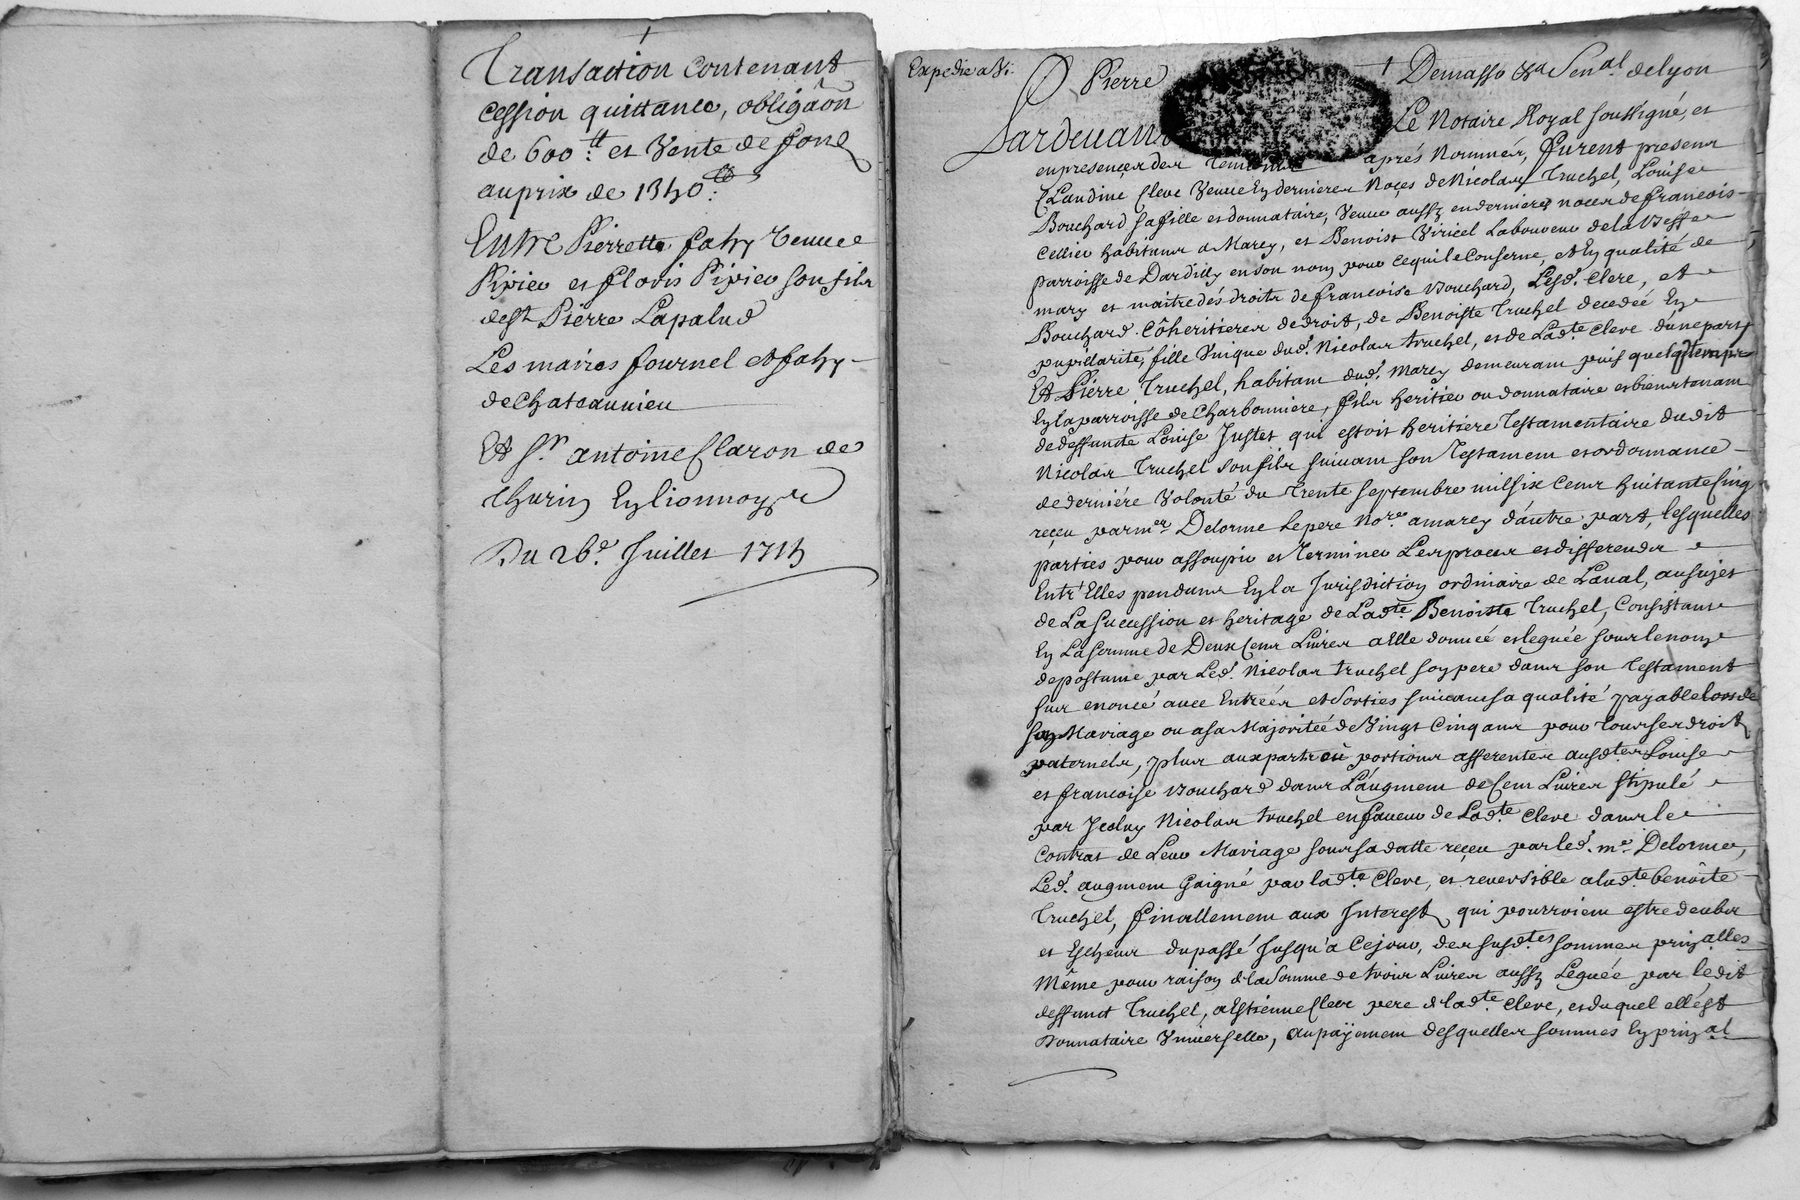 Transaction contenant
cession quittance, obligãon
de 600 tt: et Vente de fond
au prix de 1340 tt:
Entre Pierrette faty veuve
Pivier et floris Pivier son fils
de St Pierre Lapalud
Les maires fournel et faty
de Chateauvieu
Et Sr. antoine Claron de
thurin En lionnoy
Du 26e. Juillet 1714
Expedie a Vi.
Pierre
Demasso Sen.al de lyon
Pardevant Le Notaire Royal soussigné, et
en presence des Temoins aprés Nommés, furent presens
Claudine Cleve Veuve En dernieres Noçes de Nicolas Truchel, Louise
Bouchard sa fille et donnataire, Veuve aussy en dernieres noces de francois
Cellier habitans a Marcy, et Benoist Viricel Laboureur de la
parroisse de Dardilly en son nom pour ce qui le Conserne, et En qualité de
mary et maitre dés droits de francoise Bouchard, Lesd. Cleve, et
Bouchard Côheritieres de droit, de Benoiste Truchel decedeé En
pupillarite, fille Unique dud. Nicolas truchel, et de Ladte Cleve d'une part,
Et Pierre Truchel, habitant dud. Marcy demeurant puis quelq temps
En la parroisse de Charbonniere, fils heritier ou donnataire et bientenant
de deffuncte Louise Justet qui estoit heritiere Testamentaire dudit
Nicolas Truchel son fils suivant son Testament et ordonnance
de derniére Volonté du Trente septembre mil six Cens huitante Cinq
reçeu par mer. Delorme le pere Nore. a marcy d'autre part, lesquelles
parties pour assoupir et Terminer Les proces et differends
Entr'Elles pendans En la Jurisdiction ordinaire de Laval, au sujet
de La succession et heritage de Ladte. Benoiste Truchel, Consistans
En La somme de Deux Cens Livres a Elle donneé et leguée sous le nom
de postume par Led. Nicolas truchel son pere dans son Testament
sus enoncé avec Entrées et Sorties suivant sa qualité payable lors de
son Mariage ou a sa Majoriteé de Vingt Cinq ans pour tous ses droits
paternels, plus aux parts ou portions afferentes ausdtes. Louise
et francoise Bouchard dans L'augment de Cent Livres stipulé
par Jceluy Nicolas truchel en faveur de Ladte. Cleve dans le
Contrat de Leur Mariage sous sa datte reçeu par led. me. Delorme,
Led. augment Gaigné par ladte. Cleve, et reversible a ladte benôite
Truchel, finallement aux Interests qui pourroient estre deubs
et Escheus du passé Jusqu'a Ce jour, des susdtes sommes prinalles
Même pour raison de la Somme de trois Livres aussy Leguée par ledit
deffunct Truchel, a Estienne Cleve pere de ladte. Cleve, et duquel ell'ést
Donnataire Universelle, au payement desquelles sommes En prinal